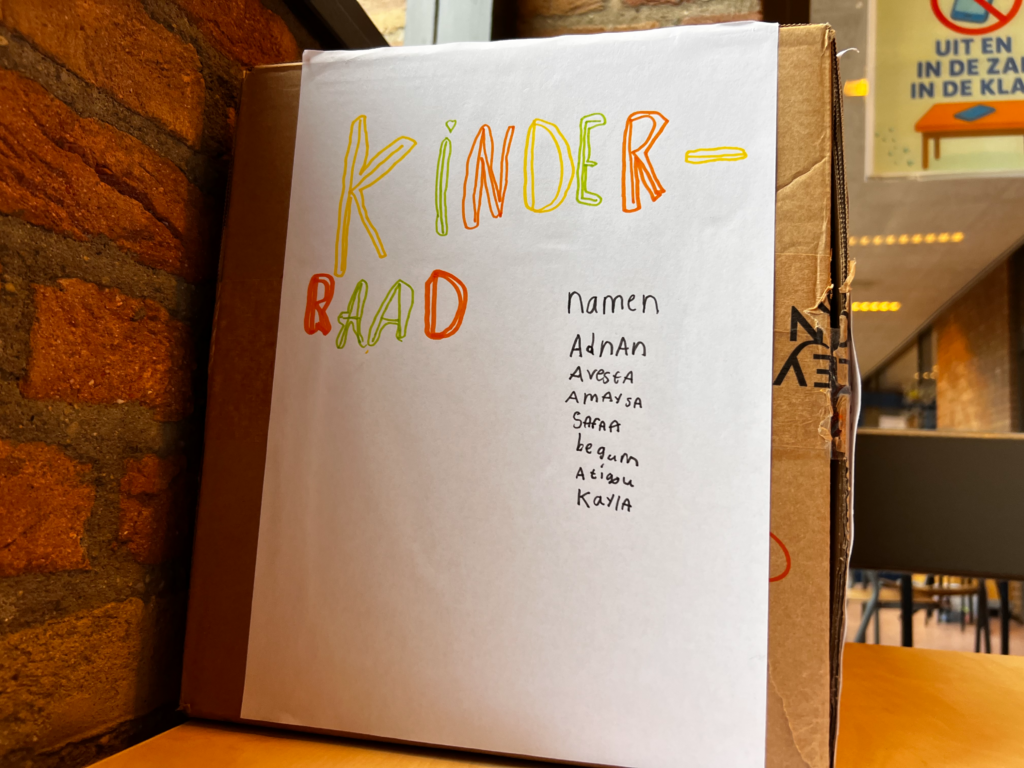 KiNDER-
RAAD
namen
AdnAn
AvestA
AmAysA
SAFAA
begum
KAylA
UIT EN
IN DE ZA
IN DE KLA